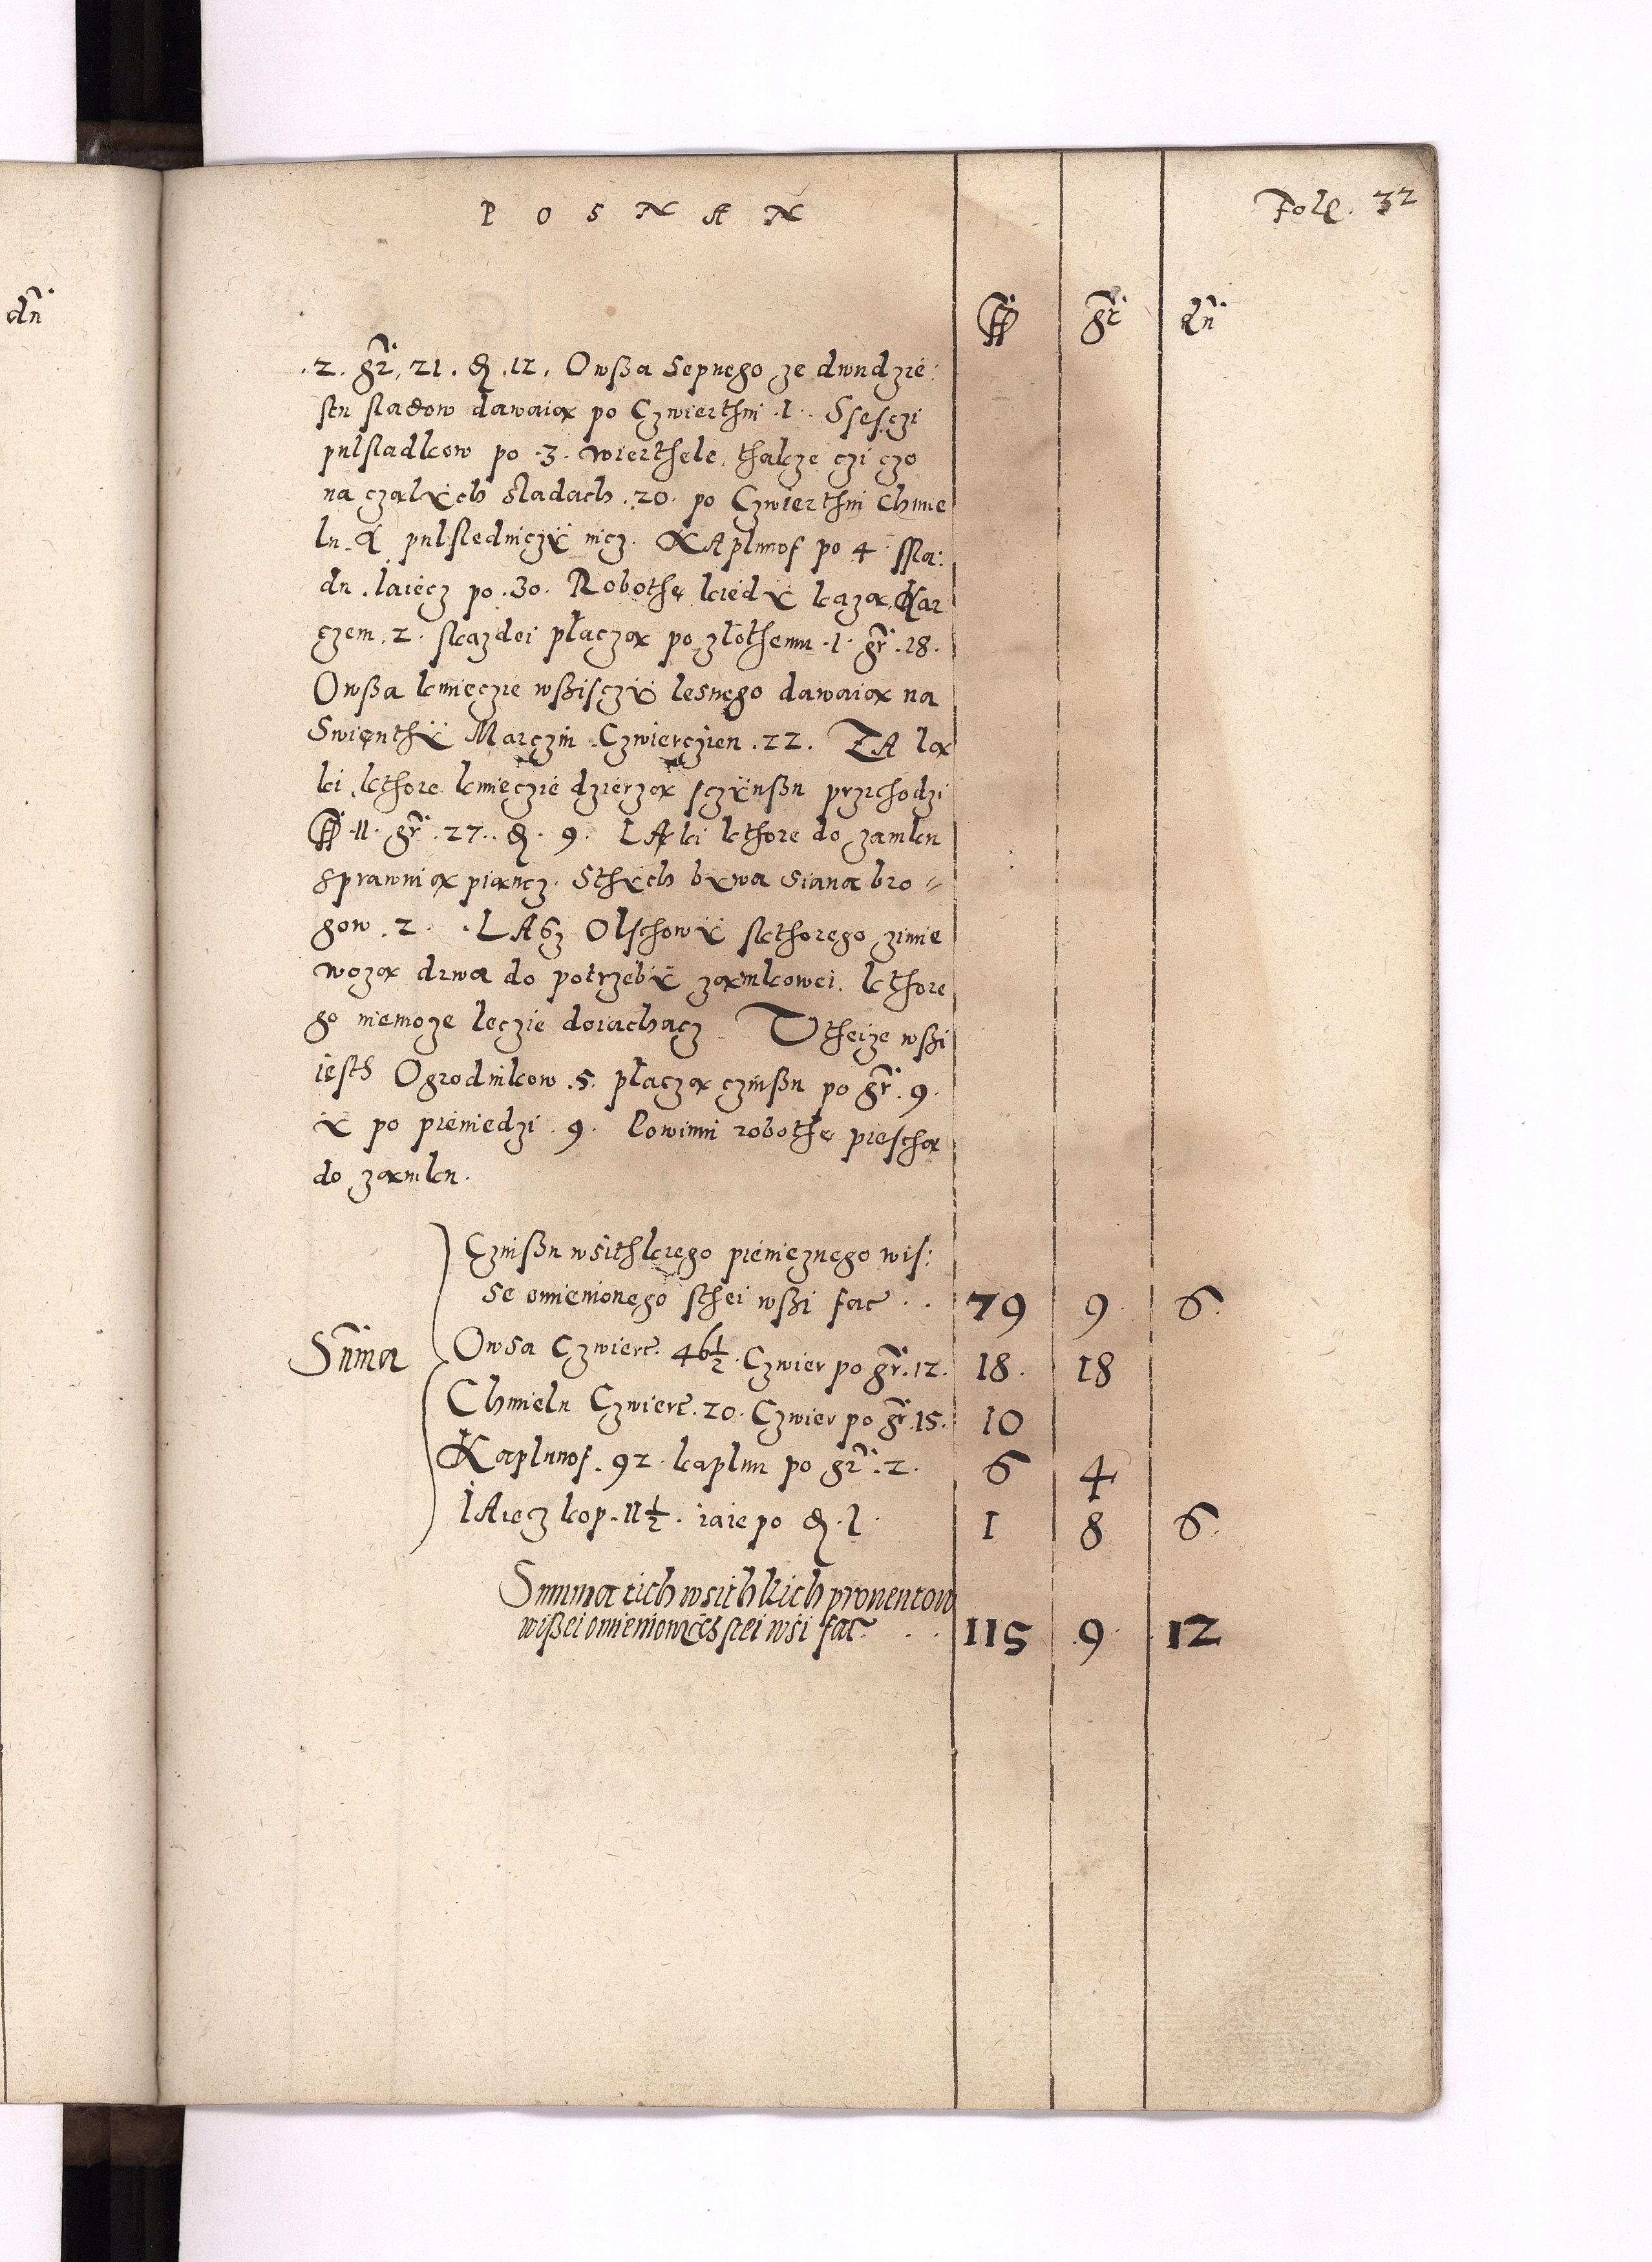 P O S N A N
Fole. 32
dn
ff gr dn
.2. gr. 21. d .12. Owßa Sepnego ze dwudzie:
stu sladow dawaią po Czwierthni .1. Ssesczi
pulsladkow po .3. wierthele, thakze czi czo
na czalych sladach .20. po Czwierthni Chmie
lu. A pulsledniczy nicz. KApłunof po 4 ssla:
du. Iaiecz po .30. Robothę kiedy kazą. Kar
czem .2. skazdei płaczą po złothemu .1. gr .18.
Owßa kmieczie wßisczy lesnego dawaią na
Swięnthy Marczin Czwierczien .22. ZA lą
ki kthore kmieczie dzierzą sczynßu przichodzi
ff .11. gr .27. d. 9. LAki kthore do zamku
sprawnią piancz. Sthych bywa siana bro-
gow .2. LASz Olschowy skthorego zimie
wozą drwa do potrzeby zamkowei. kthore
go niemoze leczie doiachacz Vtheize wßi
iesth Ogrodnikow .5. płaczą czinßu po gr .9.
y po pieniedzi .9. Powinni robothę pieschą
do zamku.
Czinßu wsithkiego pienieznego wis:
se omienionego sthei wßi fac . . 79 9 6
Suma
Owsa Czwierc. 46½. Czwier po gr .12. 18. 18
Chmielu Czwierc .20. Czwier po gr .15. 10
Kapłunof .92. kapłun po gr .2. 6 4
IAiecz kop. 11½. iaie po d .1. 1 8 6
Summa tich wsithkich prouentow
wißei omienionych stei wsi fac . . 115 9 12